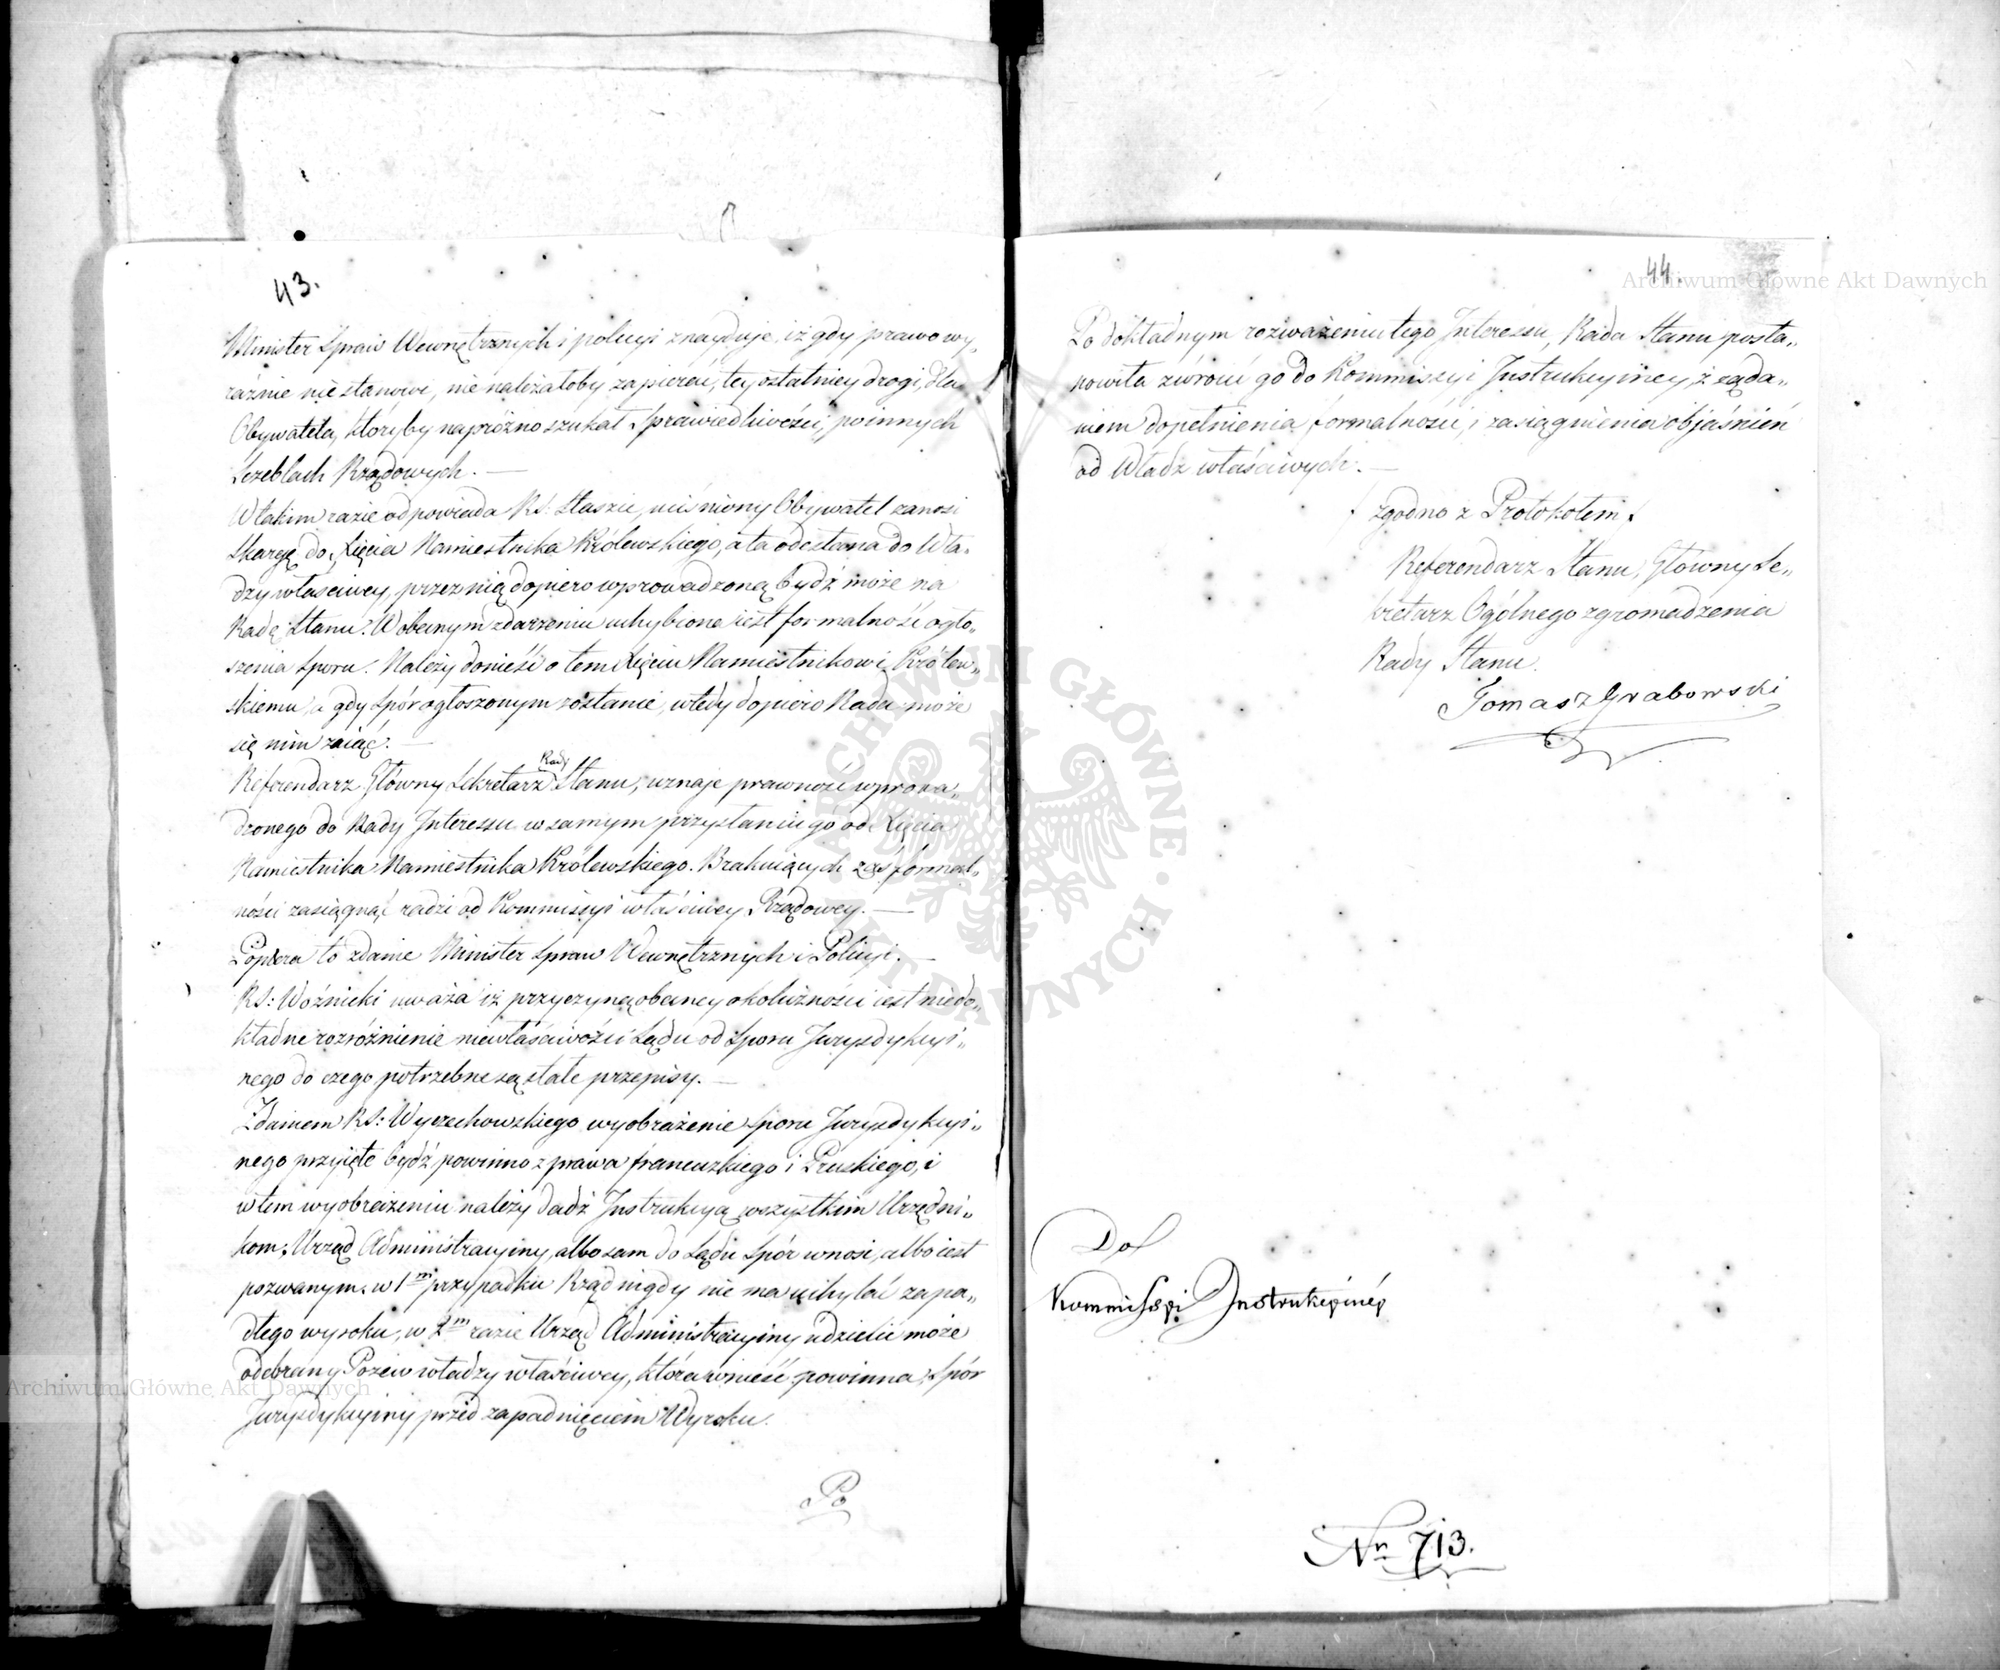 43.
Minister Spraw Wewnętrznych i policyi znayduje, iż gdy prawo wy„
raźnie nie stanowi, nie należałoby zapierać, tey ostatniey drogi, dla
Obywatela, któryby napróżno szukał Sprawiedliwości, po innych
Szeblach Rządowych. —
W takim razie odpowiada RS: Staszic, uciśniony Obywatel zanosi
Skargę do Xięcia Namiestnika Królewskiego, a ta odesłana do Wła„
dzy właściwey, przez nią dopiero wprowadzoną bydź może na
Radę Stanu. W obecnym zdarzeniu uchybione iest formalność ogło„
szenia Sporu. Należy donieść o tem Xięciu Namiestnikowi Królew„
skiemu, a gdy Spór ogłoszonym zostanie, wtedy dopiero Rada może
się nim zaiąć. —
Referendarz Główny Sekretarz Rady Stanu, uznaje prawność wprowa„
dzonego do Rady Interessu w samym przysłaniu go od Xięcia
Namiestnika Namiestnika Królewskiego. Brakuiących zaś formal„
ności zasiągnąć radzi od Kommissyi właściwey Rządowey. —
Popiera to zdanie Minister Spraw Wewnętrznych i Policyi. —
RS: Woźnicki uważa iż przyczyną obecney okoliczności iest niedo„
kładne rozróżnienie niewłaściwości Sądu od Sporu Jurysdykcyi„
nego do czego potrzebne są stałe przepisy. —
Zdaniem RS: Wyczechowskiego wyobrażenie Sporu Jurysdykcyi„
nego przyięte bydź powinno z prawa francuzkiego i Pruskiego, i
w tem wyobrażeniu należy dadź Instrukcyą wszystkim Urzędni„
kom. Urząd Administracyiny, albo sam do Sądu Spór wnosi, albo iest
pozwanym. w 1m przypadku Rząd nigdy nie ma uchylać zapa„
dłego wyroku, w 2m razie Urząd Administracyiny udzielić może
odebrany Pozew władzy właściwey, która wnieść powinna Spór
Jurysdykcyiny przed zapadnięciem Wyroku.
Po
44.
Po dokładnym rozważeniu tego Interessu, Rada Stanu posta„
nowiła zwrócić go do Kommissyi Instrukcyiney, z żąda„
niem dopełnienia formalności, i zasiągnienia objaśnień
od Władz właściwych. —
Zgodno z Protokołem
Referendarz Stanu, Główny Se„
kretarz Ogólnego zgromadzenia
Rady Stanu.
Tomasz Grabowski
Do
Kommissyi Instrukcyinéy
Nn 713.
Archiwum Główne Akt Dawnych
Archiwum Główne Akt Dawnych
ARCHIWUM GŁÓWNE AKT DAWNYCH